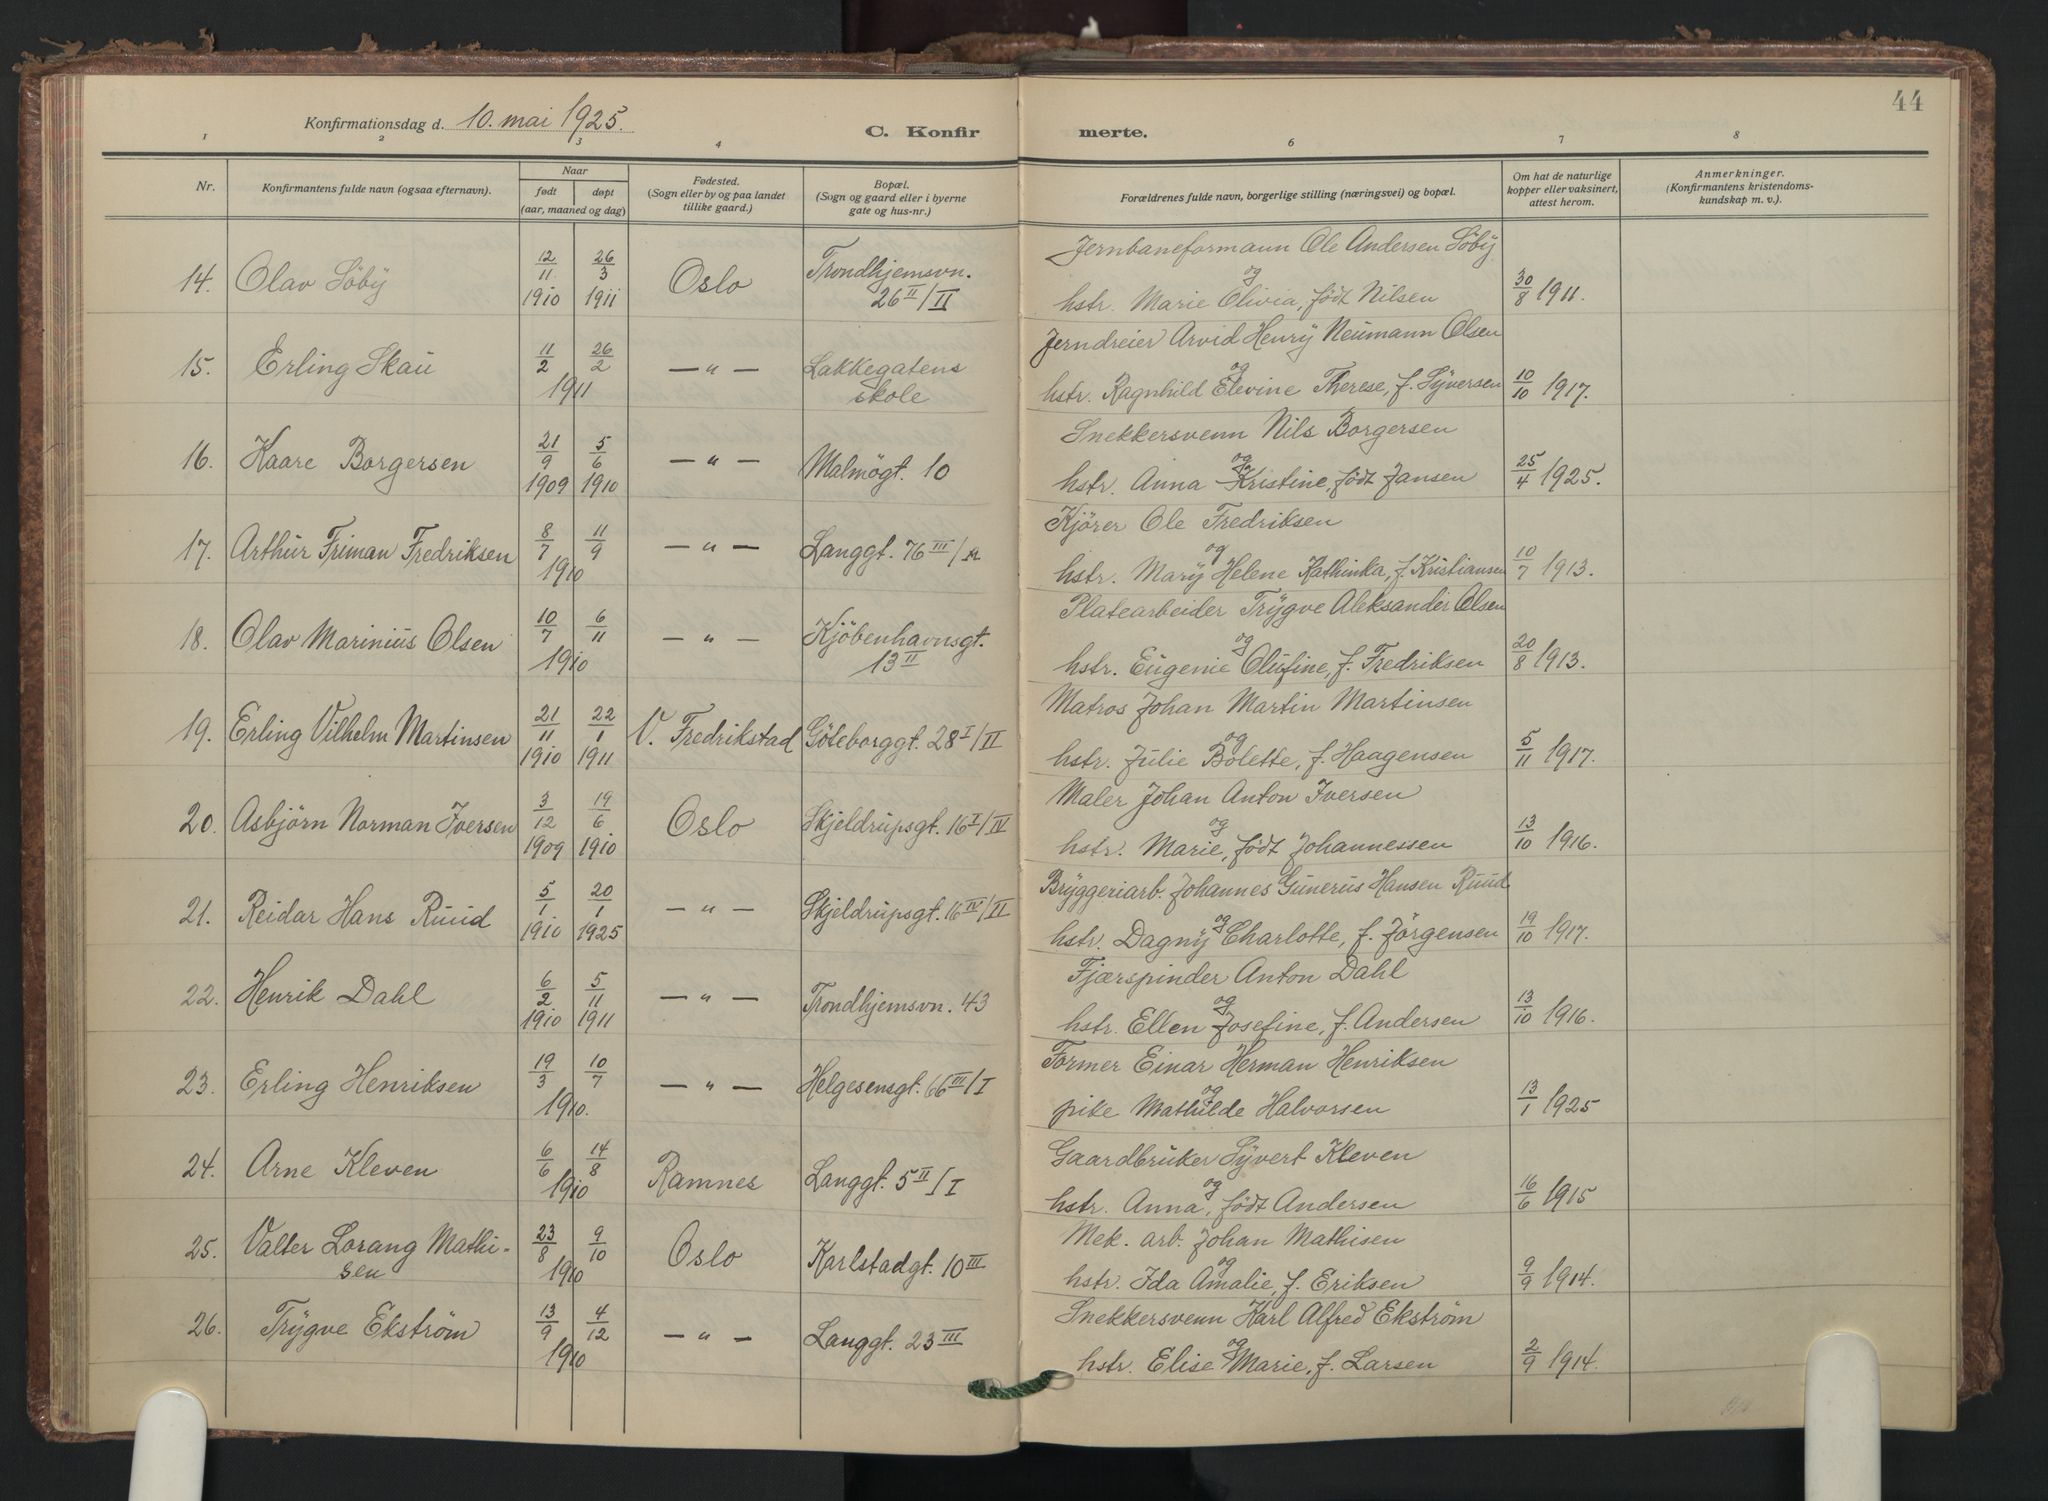 44
Konfirmationsdag d. 10. mai 1925. C. Konfir merte.
1 2 3 4 6 7 8
Nr. Konfirmantens fulde navn (ogsaa efternavn). Naar født døpt (aar, maaned og dag) Fødested. (Sogn eller by og paa landet tillike gaard.) Bopæl. (Sogn og gaard eller i byerne gate og hus-nr.) Forældrenes fulde navn, borgerlige stilling (næringsvei) og bopæl. Om hat de naturlige kopper eller vaksinert, attest herom. Anmerkninger. (Konfirmantens kristendoms-kundskap m. v.).
14. Olav Söby 12/11 1910 26/3 1911 Oslo Trondhjemsvn. 26 II/II Jernbaneformann Ole Andersen Söby
og
hstr. Marie Olivia, födt Nilsen 30/8 1911.
15. Erling Skau 11/2 26/2 1911 — " — Lakkegatens skole Jerndreier Arvid Henry Neumann Olsen
og
hstr. Ragnhild Elevine Therese, f. Syversen 10/10 1917.
16. Kaare Borgersen 21/9 1909 5/6 1910 — " — Malmögt. 10 Snekkersvenn Nils Borgersen
og
hstr. Anna Kristine, födt Jansen 25/4 1925.
17. Arthur Friman Fredriksen 8/7 11/9 1910 — " — Langgt. 76 III/ Kjörer Ole Fredriksen
og
hstr. Mary Helene Kathinka, f. Kristiansen 10/7 1913.
18. Olav Marinius Olsen 10/7 6/11 1910 — " — Kjöbenhavnsgt. 13 II Platearbeider Trygve Aleksander Olsen
og
hstr. Eugenie Olufine, f. Fredriksen 20/8 1913.
19. Erling Vilhelm Martinsen 21/11 1910 22/1 1911 V. Fredrikstad Göteborggt. 28 I/II Matros Johan Martin Martinsen
og
hstr. Julie Bolette, f. Haagensen 5/11 1917.
20. Asbjörn Norman Iversen 3/12 1909 19/6 1910 Oslo Skjeldrupsgt. 16 I/IV Maler Johan Anton Iversen
og
hstr. Marie, födt Johannessen 13/10 1916.
21. Reidar Hans Ruud 5/1 1910 20/1 1925 — " — Skjeldrupsgt. 16 IV/II Bryggeriarb. Johannes Gunerus Hansen Ruud
og
hstr. Dagny Charlotte, f. Jörgensen 19/10 1917.
22. Henrik Dahl 6/2 1910 5/11 1911 — " — Trondhjemsvn. 43 Fjærspinder Anton Dahl
og
hstr. Ellen Josefine, f. Andersen 13/10 1916.
23. Erling Henriksen 19/3 10/7 1910. — " — Helgesensgt. 66 III/I Former Einar Herman Henriksen
og
pike Mathilde Halvorsen 13/1 1925
24. Arne Kleven 6/6 14/8 1910 Ramnes Langgt. 5 II/I Gaardbruker Syvert Kleven
og
hstr. Anna, födt Andersen 16/6 1915
25. Valter Lorang Mathi-
sen 23/8 9/10 1910 Oslo Karlstadgt. 10 III Mek. arb. Johan Mathisen
og
hstr. Ida Amalie, f. Eriksen 9/9 1914.
26. Trygve Ekström 13/9 4/12 1910 — " — Langgt. 23 III Snekkersvenn Karl Alfred Ekström
og
hstr. Elise Marie, f. Larsen 2/9 1914.